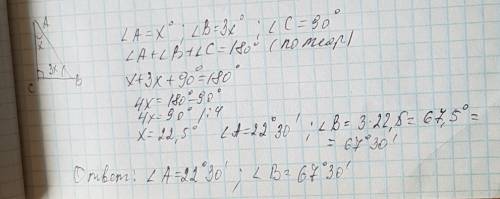 A
x
C
3x
B
∠A=x° ; ∠B=3x° ; ∠C=90°
∠A+∠B+∠C=180° (по теор)
x+3x+90°=180°
4x=180°-90°
4x=90° /:4
x=22,5° ∠A=22°30' ; ∠B=3·22,5=67,5°=
=67°30'
Ответ: ∠A=22°30' ; ∠B=67°30'